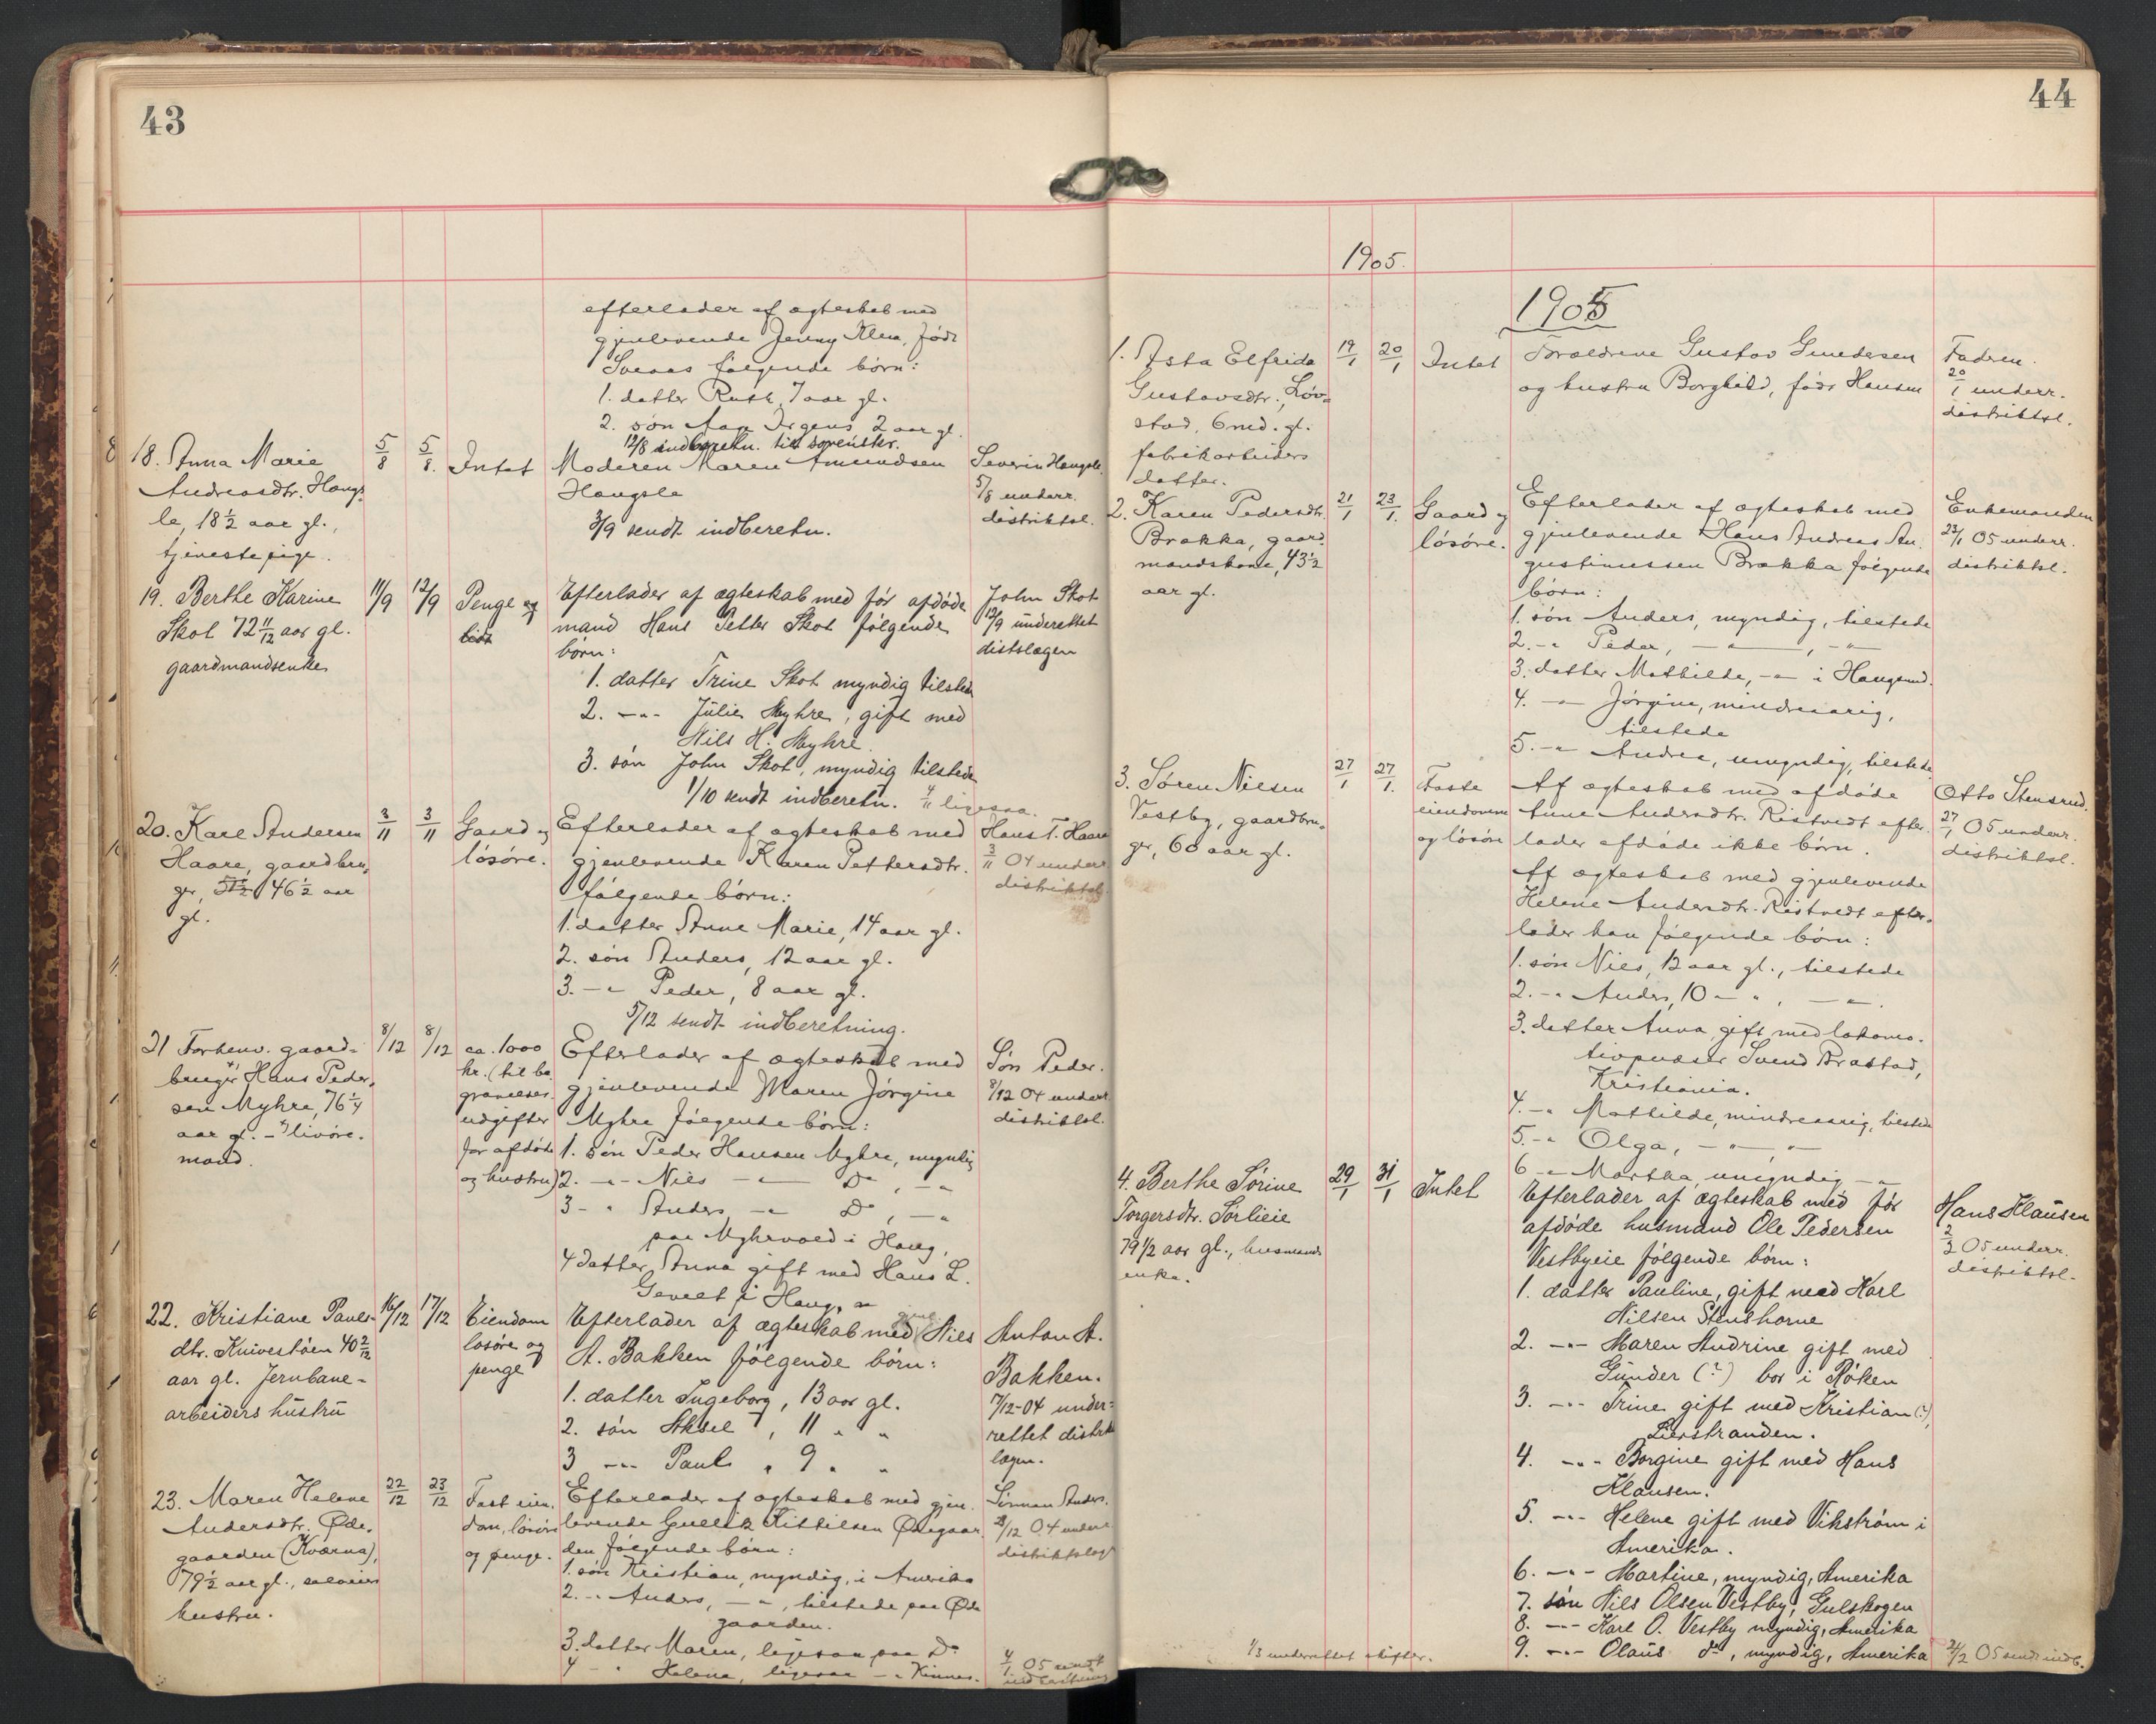 43
efterlader af ægteskab med
gjenlevende Jenny Klem, født
følgende børn:
1. datter Ruth, 7 aar gl.
2. søn Aage 2 aar gl.
12/8 indberetn. til sorenskr.
18. Anna Marie
Andreasdtr. Haugs-
le, 18 1/2 aar gl.,
tjenestepige.
5/8
5/8.
Intet
Moderen Maren Amundsen
Haugsle
3/9 sendt indberetn.
Severin Haugsle.
5/8 underr.
distriktsl.
19. Berthe Karine
Skot 72 11/12 aar gl.
gaardmandsenke
11/9
12/9
Penge og
Efterlader af ægteskab med før afdøde
mand Hans Petter Skot følgende
børn:
1. datter Trine Skot myndig tilstede
2. -"- Julie Myhre, gift med
Nils H. Myhre.
3. søn John Skot, myndig tilstede
1/10 sendt indberetn. 4/11 ligesaa.
John Skot
12/9 underettet
distslægen
20. Karl Andersen
Haare, gaardbru-
ger, 46 1/2 aar
gl.
3/11
3/11
Gaard og
løsøre.
Efterlader af ægteskab med
gjenlevende Karen Pettersdtr.
følgende børn:
1. datter Anne Marie, 14 aar gl.
2. søn Anders, 12 aar gl.
3. -"- Peder, 8 aar gl.
5/12 sendt indberetning.
Hans T. Haare
3/11 04 underr.
distriktsl.
21 Forhenv. gaard-
bruger Hans Peder-
sen Myhre, 76 1/4
aar gl. - livøre-
mand.
8/12
8/12
ca. 1000
kr. (til be-
gravelses-
udgifter
for afdøde
og hustru)
Efterlader af ægteskab med
gjenlevende Maren Jørgine
Myhre følgende børn:
1. søn Peder Hansen Myhre, myndig
2. -"- Nils -"- Do, -"-
3 -"- Anders -"- Do, -"-
paa Myhrvold i Haug.
4 datter Anna gift med Hans L.
Gevelt i Haug.
Søn Peder.
8/12 04 underr
distriktsl.
22. Kristiane Pauls-
dtr. Knivestøen 40 2/12
aar gl. Jernbane-
arbeiders hustru
16/12
17/12
Eiendom
løsøre og
penge
Efterlader af ægteskab med gjenl. Nils
A. Bakken følgende børn:
1. datter Ingeborg, 13 aar gl.
2. søn Aksel, 11 " "
3 -"- Paul " 9 " "
Anton A.
Bakken.
17/12-04 under-
rettet distrikts
lægen.
23. Maren Helene
Andersdtr. Øde-
gaarden (Kværna),
79 1/2 aar gl., selveier
hustru.
22/12
23/12
Fast eien-
dom, løsøre
og penge.
Efterlader af ægteskab med gjen-
levende Gullik Kittilsen Ødegaar-
den følgende børn:
1. søn Kristian, myndig, i Amerika
2. -"- Anders, -"-, tilstede paa Øde
gaarden.
3. datter Maren, ligesaa paa Do
4 -"- Helene, ligesaa -"- Kinnes.
Anders.
23/12 04 underr
distriktslæg
4/1 05 sendt
indberetning
44
1905.
1905
1. Asta Elfrida
Gustavsdtr., Løv-
stad, 6 md. gl.
fabrikarbeiders
datter.
19/1
20/1
Intet
Forældrene Gustav Gundersen
og hustru Borghild, født Hansen
Faderen.
20/1 underr.
distriktsl.
2. Karen Pedersdtr.
Brakka, gaard-
mandskone, 43 1/2
aar gl.
21/1
23/1.
Gaard og
løsøre.
Efterlader af ægteskab med
gjenlevende Hans Andreas Au-
gustinussen Brakka følgende
børn:
1. søn Anders, myndig, tilstede
2. -"- Peder, -"-, -"-
3. datter Mathilde, -"- i Haugsund.
4. -"- Jørgine, mindreaarig,
tilstede
5. -"- Andrea, umyndig, tilstede
Enkemanden
23/1 05 underr.
distriktsl.
3. Søren Nilsen
Vestby, gaardbru-
ger, 60 aar gl.
27/1
27/1.
Faste
eiendomme
og løsøre
Af ægteskab med afdøde
Anne Andersdtr. Ristvedt efter-
lader afdøde ikke børn.
Af ægteskab med gjenlevende
Helene Andersdtr. Ristvedt efter-
lader han følgende børn:
1. søn Nils, 12 aar gl., tilstede
2. -"- Anders, 10 -"-, -"-.
3. datter Anna gift med lokomo-
tivpudser Svend Brastad,
Kristiania.
4. -"- Mathilde, mindreaarig, tilstede
5. -"- Olga, -"-, -"-
6 -"- Martha, umyndig -"-
Otto Stensrud.
27/1 05 underr.
distriktsl.
4. Berthe Sørine
Torgersdtr. Sørlieie
79 1/2 aar gl., husmands
enke.
29/1
31/1
Intet
Efterlader af ægteskab med før
afdøde husmand Ole Pedersen
Vestbyeie følgende børn:
1. datter Pauline, gift med Karl
Nilsen Stenshorne
2. -"- Maren Andrine gift med
Gunder (?) bor i Røken
3. -"- Trine gift med Kristian (?),
Lierstranden.
4. -"- Borgine gift med Hans
Klausen.
5. -"- Helene gift med Vikstrøm i
Amerika.
6. -"- Martine, myndig, Amerika
7. søn Nils Olsen Vestby, Gulskogen
8. -"- Karl O. Vestby myndig, Amerika
9. -"- Olaus do, myndig, Amerika
Hans Klausen
2/2 05 underr.
distriktsl.
1/3 underrettet skifter.
2/2 05 sendt indb.